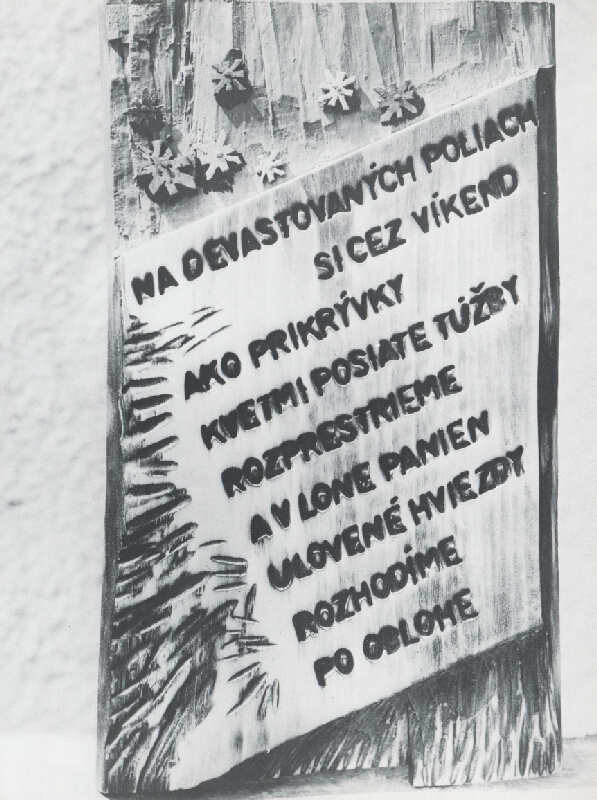 NA DEVASTOVANÝCH POLIACH
SI CEZ VÍKEND
AKO PRIKRÝVKY
KVETMI POSIATE TÚŽBY
ROZPRESTRIEME
A V LONE PANIEN
ULOVENÉ HVIEZDY
ROZHODÍME
PO OBLOHE